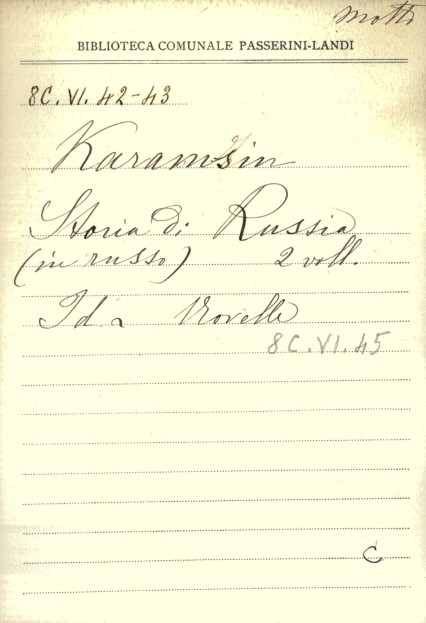 Motti
BIBLIOTECA COMUNALE PASSERINI-LANDI
8C. VI. 42-43
Karamsin
Storia di Russia
(in russo) 2 voll.
Id - Novelle
8C.VI.45
C